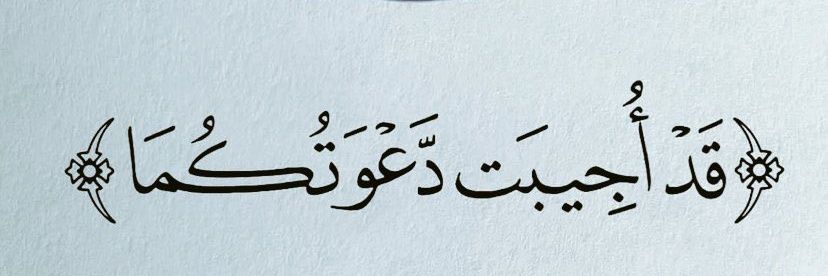 ﴿قَدْ أُجِيبَت دَّعْوَتُكُمَا﴾